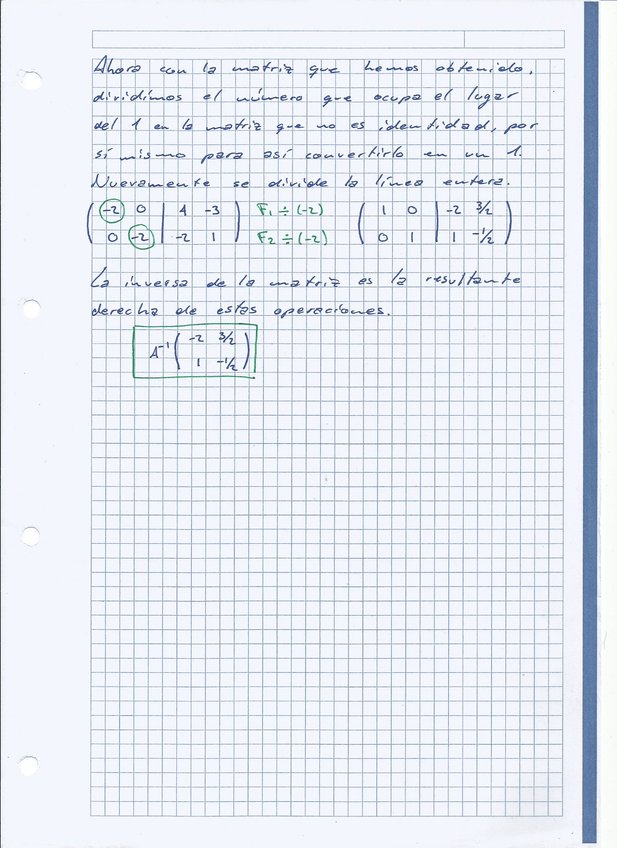 Ahora con la matriz que hemos obtenido,
dividimos el número que ocupa el lugar
del 1 en la matriz que no es identidad, por
sí mismo para así convertirlo en un 1.
Nuevamente se divide la línea entera.
( -2 0 | 4 -3 ) F₁ ÷ (-2) ( 1 0 | -2 3/2 )
( 0 -2 | -2 1 ) F₂ ÷ (-2) ( 0 1 | 1 -1/2 )
La inversa de la matriz es la resultante
derecha de estas operaciones.
A⁻¹ ( -2 3/2 )
( 1 -1/2 )